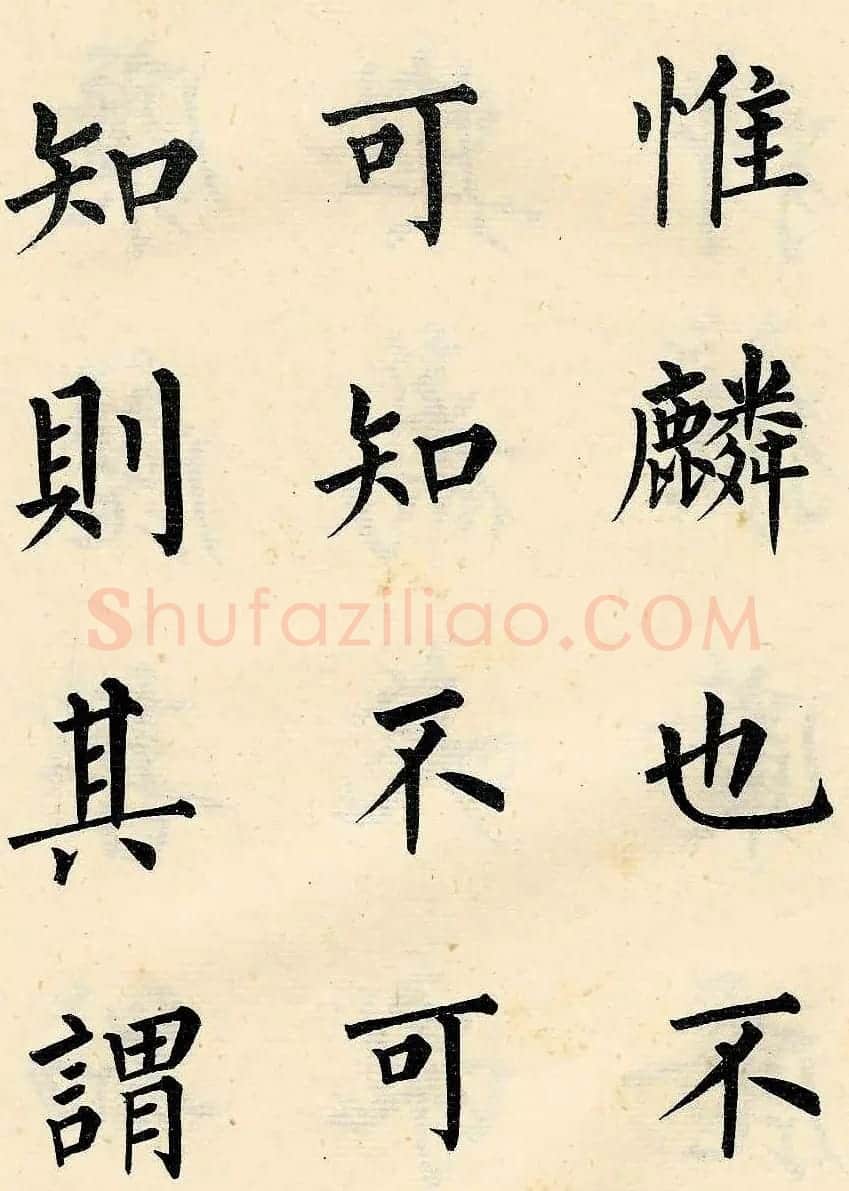 惟麟也不
可知不可
知則其謂
Shufaziliao.COM